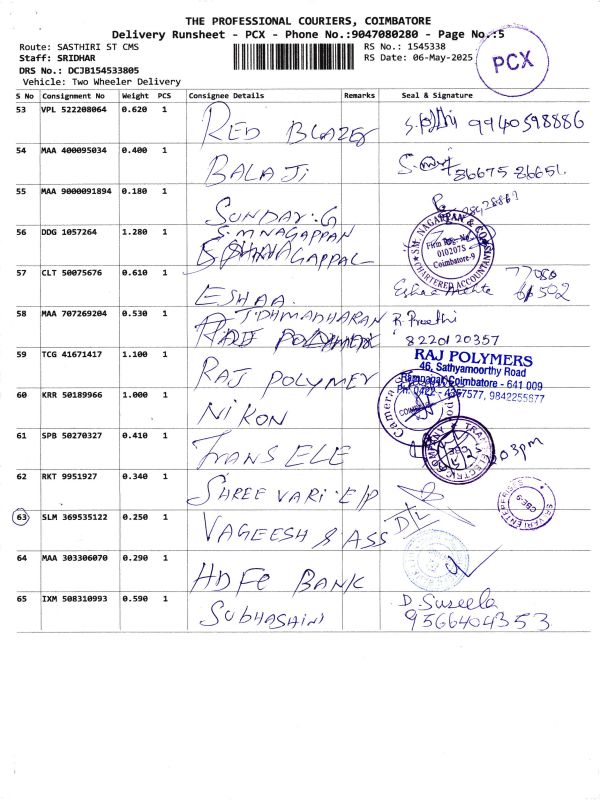 THE PROFESSIONAL COURIERS, COIMBATORE
Delivery Runsheet - PCX - Phone No.:9047080280 - Page No.:5
Route: SASTHIRI ST CMS
RS No.: 1545338
Staff: SRIDHAR
RS Date: 06-May-2025
DRS No.: DCJB154533805
Vehicle: Two Wheeler Delivery
PCX
S No Consignment No Weight PCS Consignee Details Remarks Seal & Signature
53 VPL 522208064 0.620 1 RED BLAZER 9940598886
54 MAA 400095034 0.400 1 BALAJI
55 MAA 9000091894 0.180 1 SUNDAY.G
56 DDG 1057264 1.280 1 S.M NAGAPPAN
SM. NAGAPPAN & CO
Firm Reg. No.
010207S
Coimbatore-9
CHARTERED ACCOUNTANTS
57 CLT 50075676 0.610 1 ESHAA.
58 MAA 707269204 0.530 1 R. Preethi
8220120357
59 TCG 41671417 1.100 1 RAJ POLYMER
RAJ POLYMERS
46, Sathyamoorthy Road
Ramnagar, Coimbatore - 641 009
9842255877
60 KRR 50189966 1.000 1 NIKON
Camera
61 SPB 50270327 0.410 1 TRANS ELE
62 RKT 9951927 0.340 1 SHREE VARI E/P
63 SLM 369535122 0.250 1 VAGEESH & ASS D/L
64 MAA 303306070 0.290 1 HDFC BANK
65 IXM 508310993 0.590 1 SUBHASHINI D. Suseela
9566404353